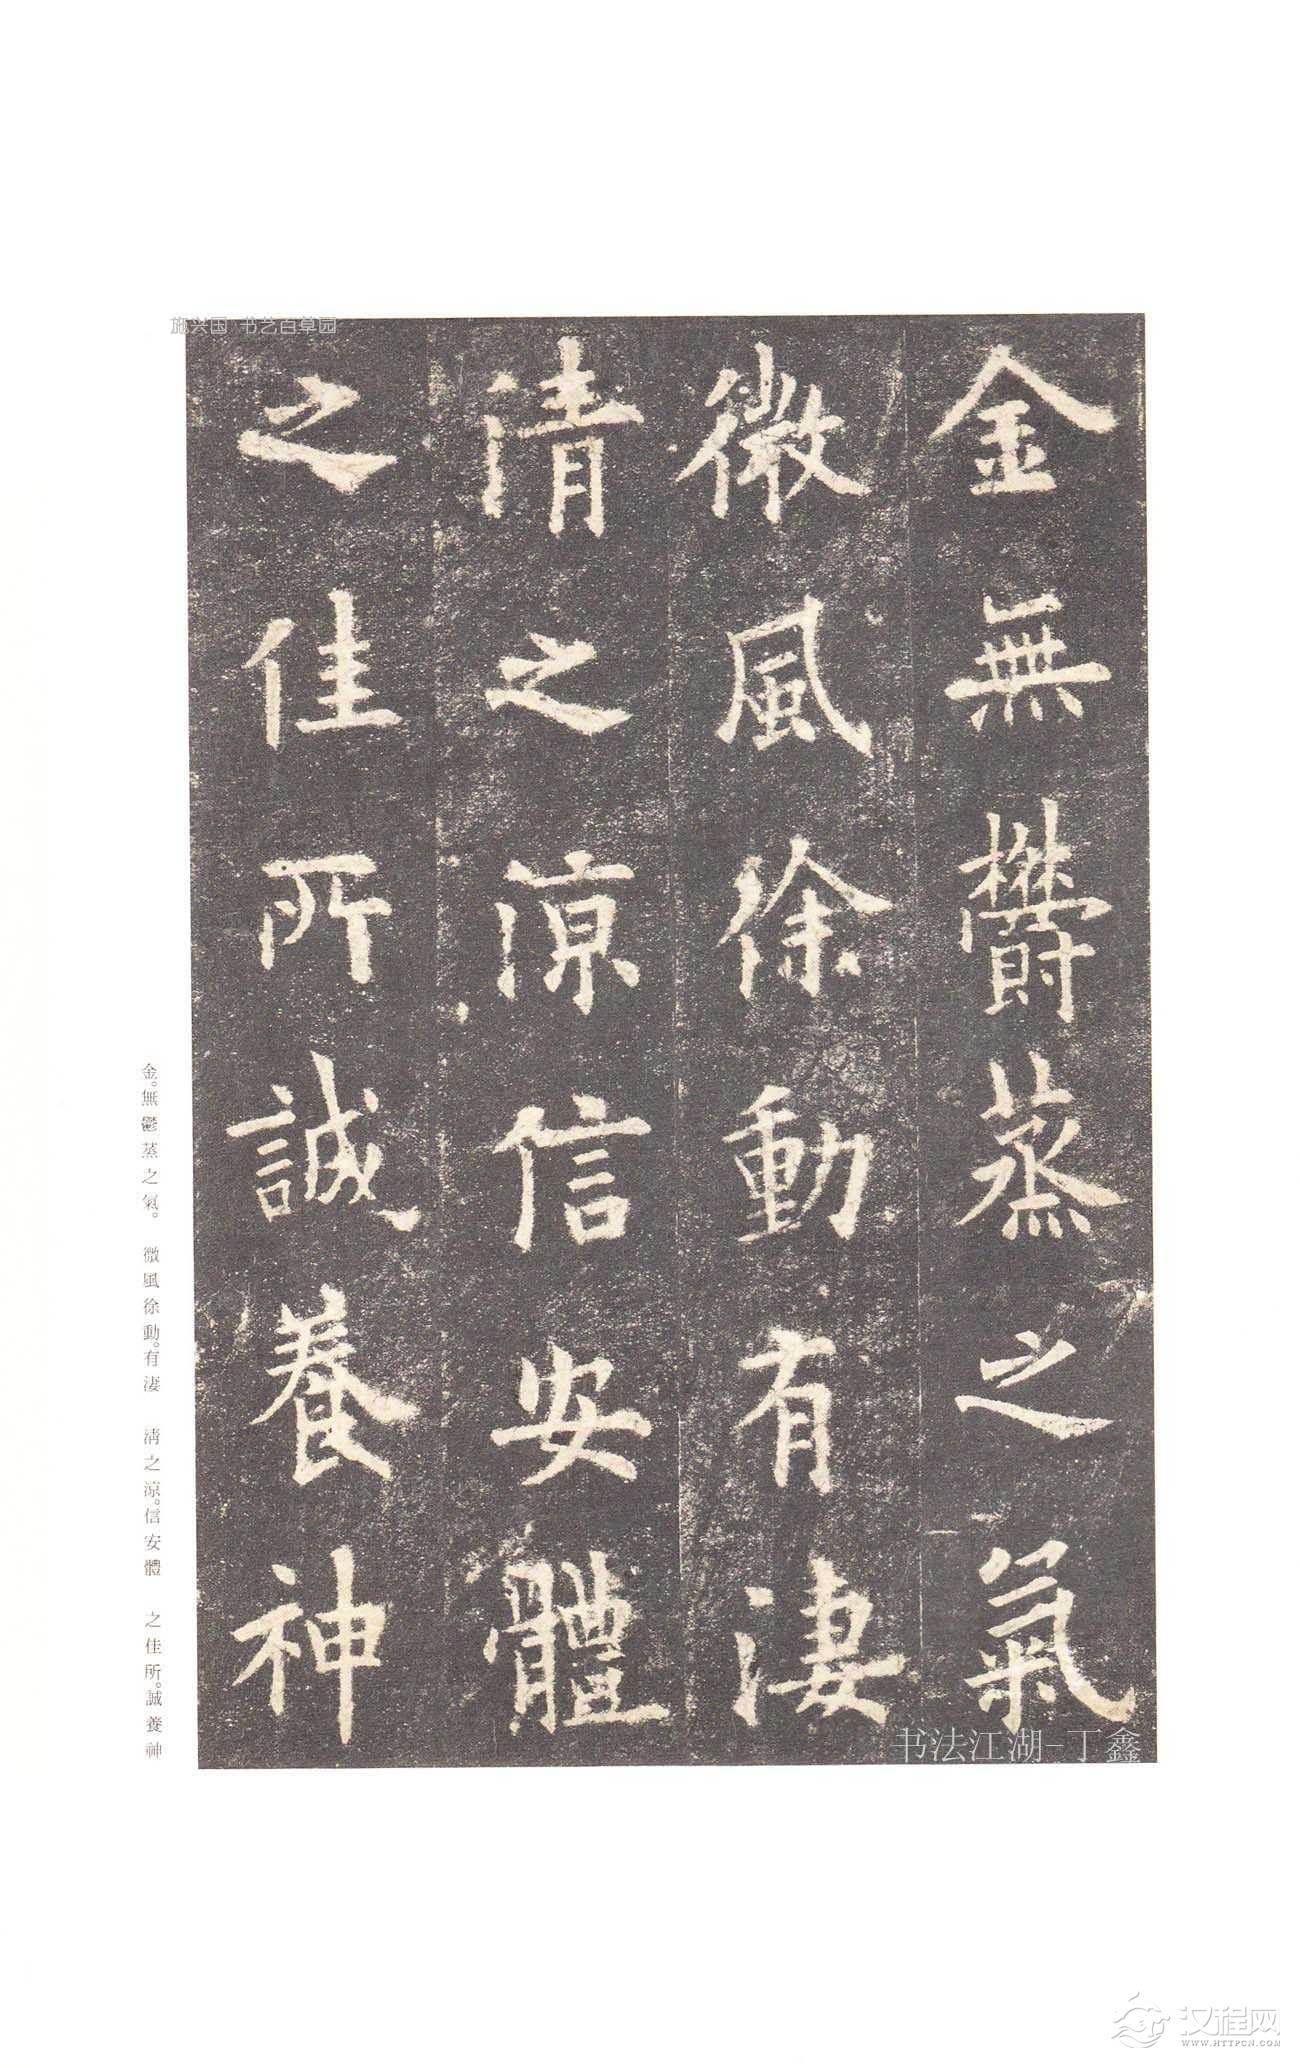 施兴国 书艺百草园
金無欝蒸之氣
微風徐動有淒
清之涼信安體
之佳所誠養神
书法江湖-丁鑫
金。無鬱蒸之氣。 微風徐動。有淒 清之涼。信安體 之佳所。誠養神
汉程网
WWW.HTTPCN.COM